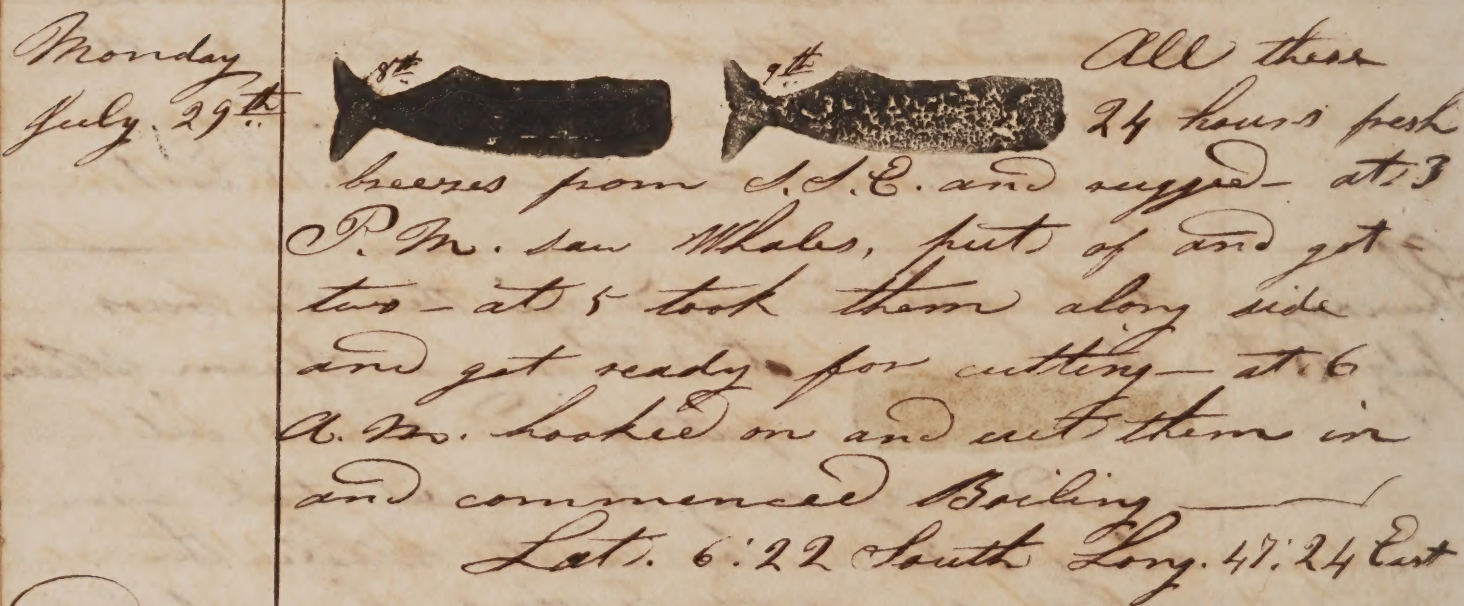 Monday
July 29th
8th
9th
All these
24 hours fresh
breezes from S.S.E. and rugged - at 3
P.M. saw Whales, put of and got -
two - at 5 took them along side
and got ready for cutting - at 6
A.M. hooked on and cut them in
and commenced Boiling
Lat. 6:22 South Long. 47:24 East